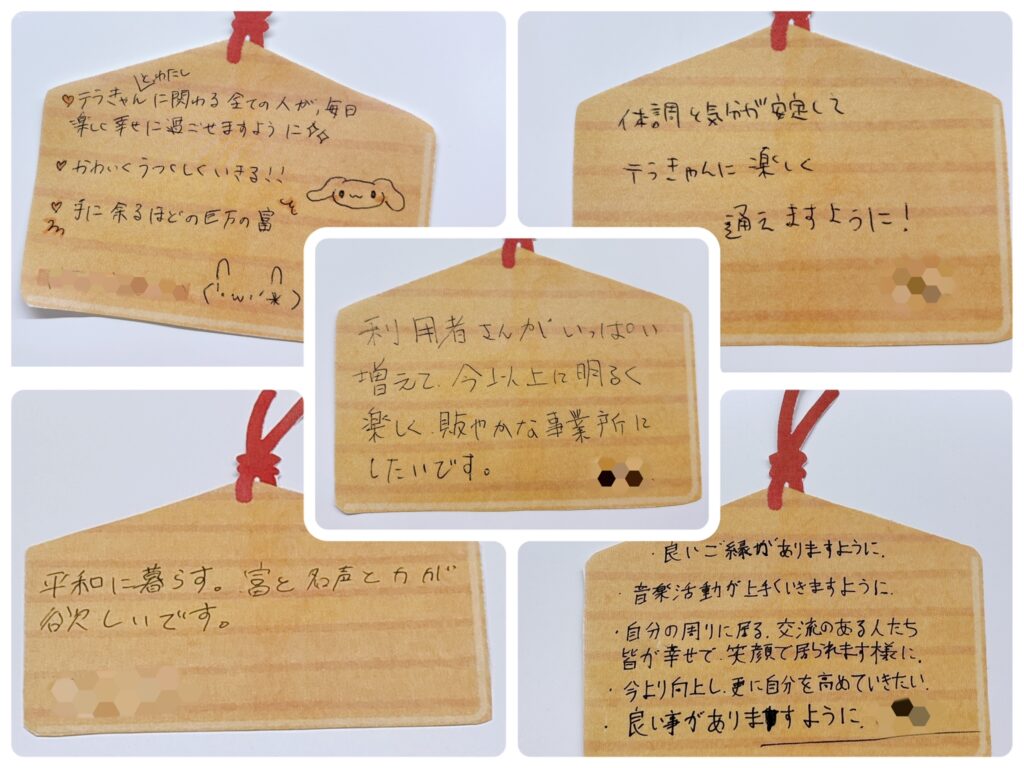 とわたし
♡テラきゃんに関わる全ての人が、毎日
楽しく幸せに過ごせますように☆☆
♡かわいくうつくしくいきる!!
♡手に余るほどの巨万の富を
体調と気分が安定して
テラきゃんに楽しく
通えますように!
利用者さんがいっぱい
増えて、今以上に明るく
楽しく、賑やかな事業所に
したいです。
平和に暮らす。富と名声と力が
欲しいです。
・良いご縁がありますように。
・音楽活動が上手くいきますように。
・自分の周りに居る、交流のある人たち
皆が幸せで、笑顔で居られます様に。
・今より向上し、更に自分を高めていきたい。
・良い事がありますように。